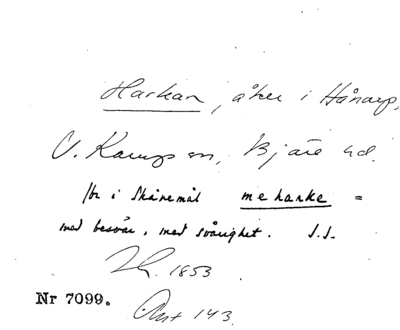 Harkan, åker i Hånarp,
V. Karups sn, Bjäre hd.
för i Skånemål meharke =
med besvär, med svårighet. S.S.
1853
Nr 7099. Ant 143.